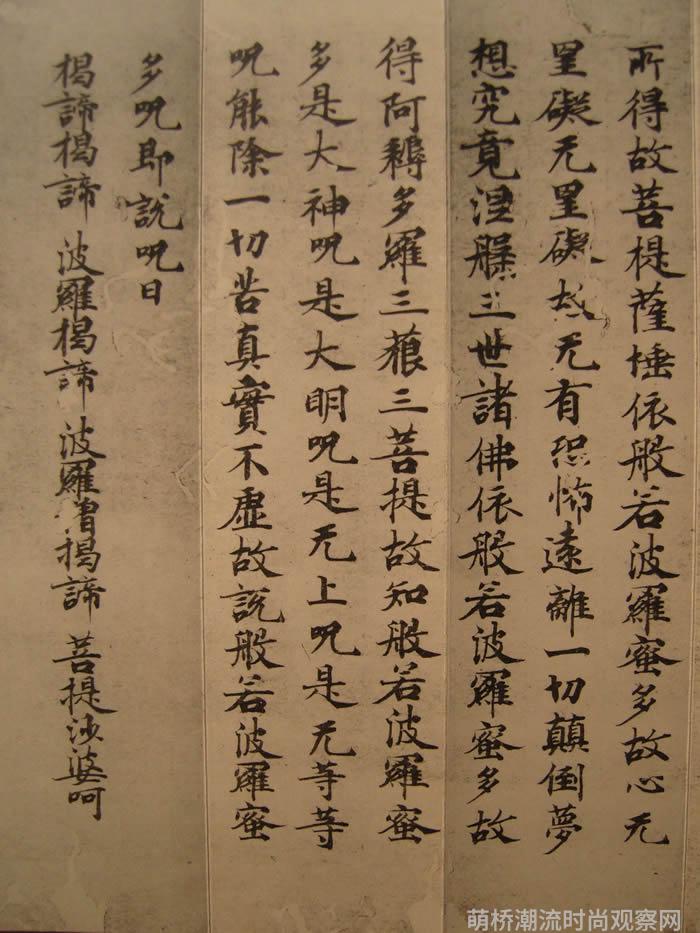 所得故菩提薩埵依般若波羅蜜多故心无
罣礙无罣礙故无有恐怖遠離一切顛倒夢
想究竟涅槃三世諸佛依般若波羅蜜多故
得阿耨多羅三藐三菩提故知般若波羅蜜
多是大神呪是大明呪是无上呪是无等等
呪能除一切苦真實不虛故說般若波羅蜜
多呪即說呪曰
揭諦揭諦 波羅揭諦 波羅僧揭諦 菩提沙婆呵
萌桥潮流时尚观察网